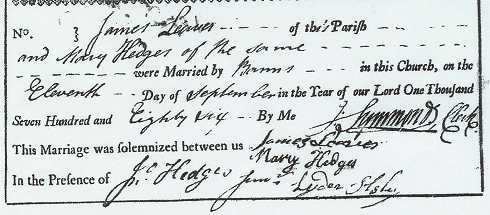 No. } James Leaver - of the's Parish
and Mary Hedges of the same
were Married by Banns in this Church, on the
Eleventh Day of September in the Year of our Lord One Thousand
Seven Hundred and Eighty six By Me J. Simmonds Clerk
This Marriage was solemnized between us James Leaver
Mary Hedges
In the Presence of Jn.o Hedges Jun.r